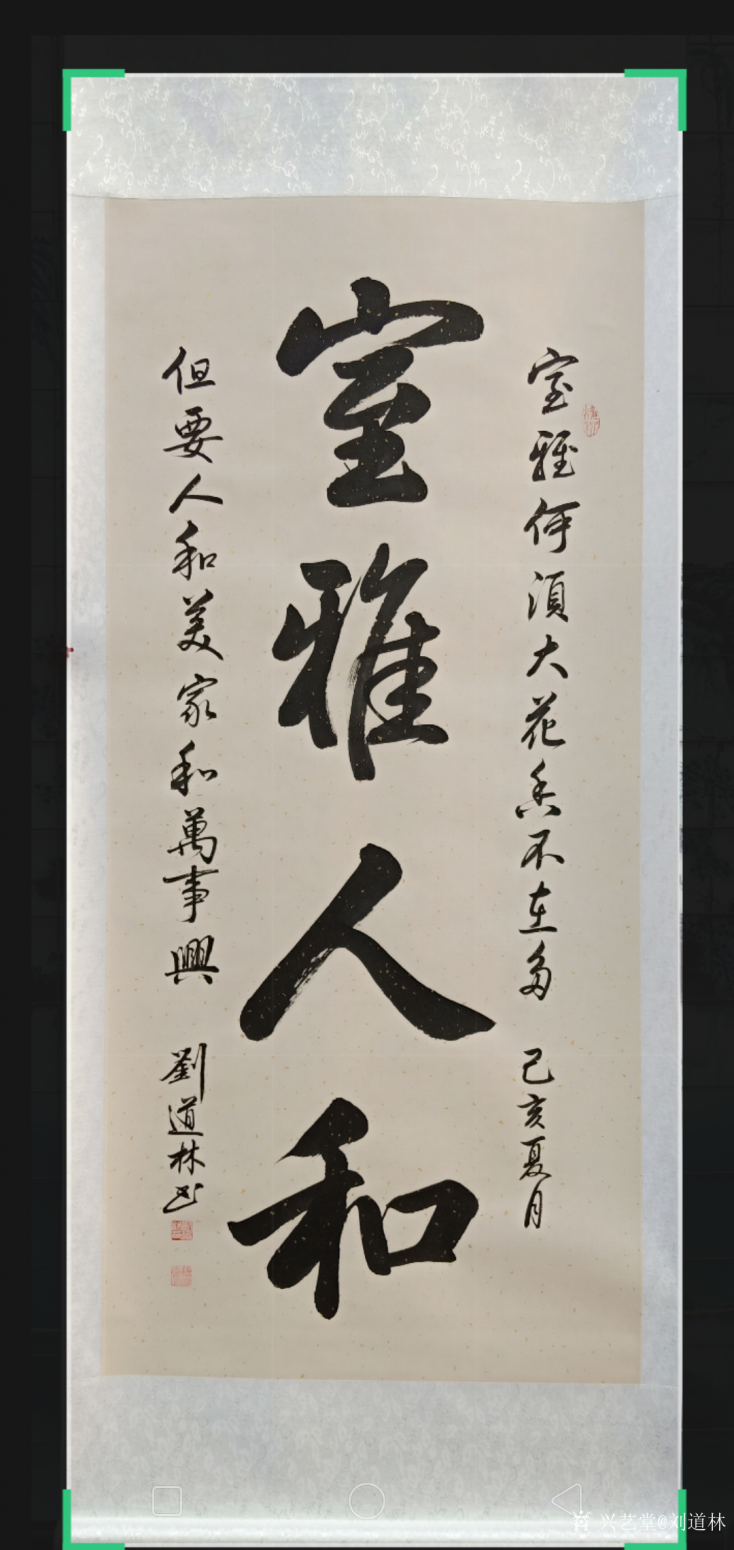 室雅人和
室雅何須大花香不在多 己亥夏月
但要人和美家和萬事興 劉道林书
兴艺堂@刘道林